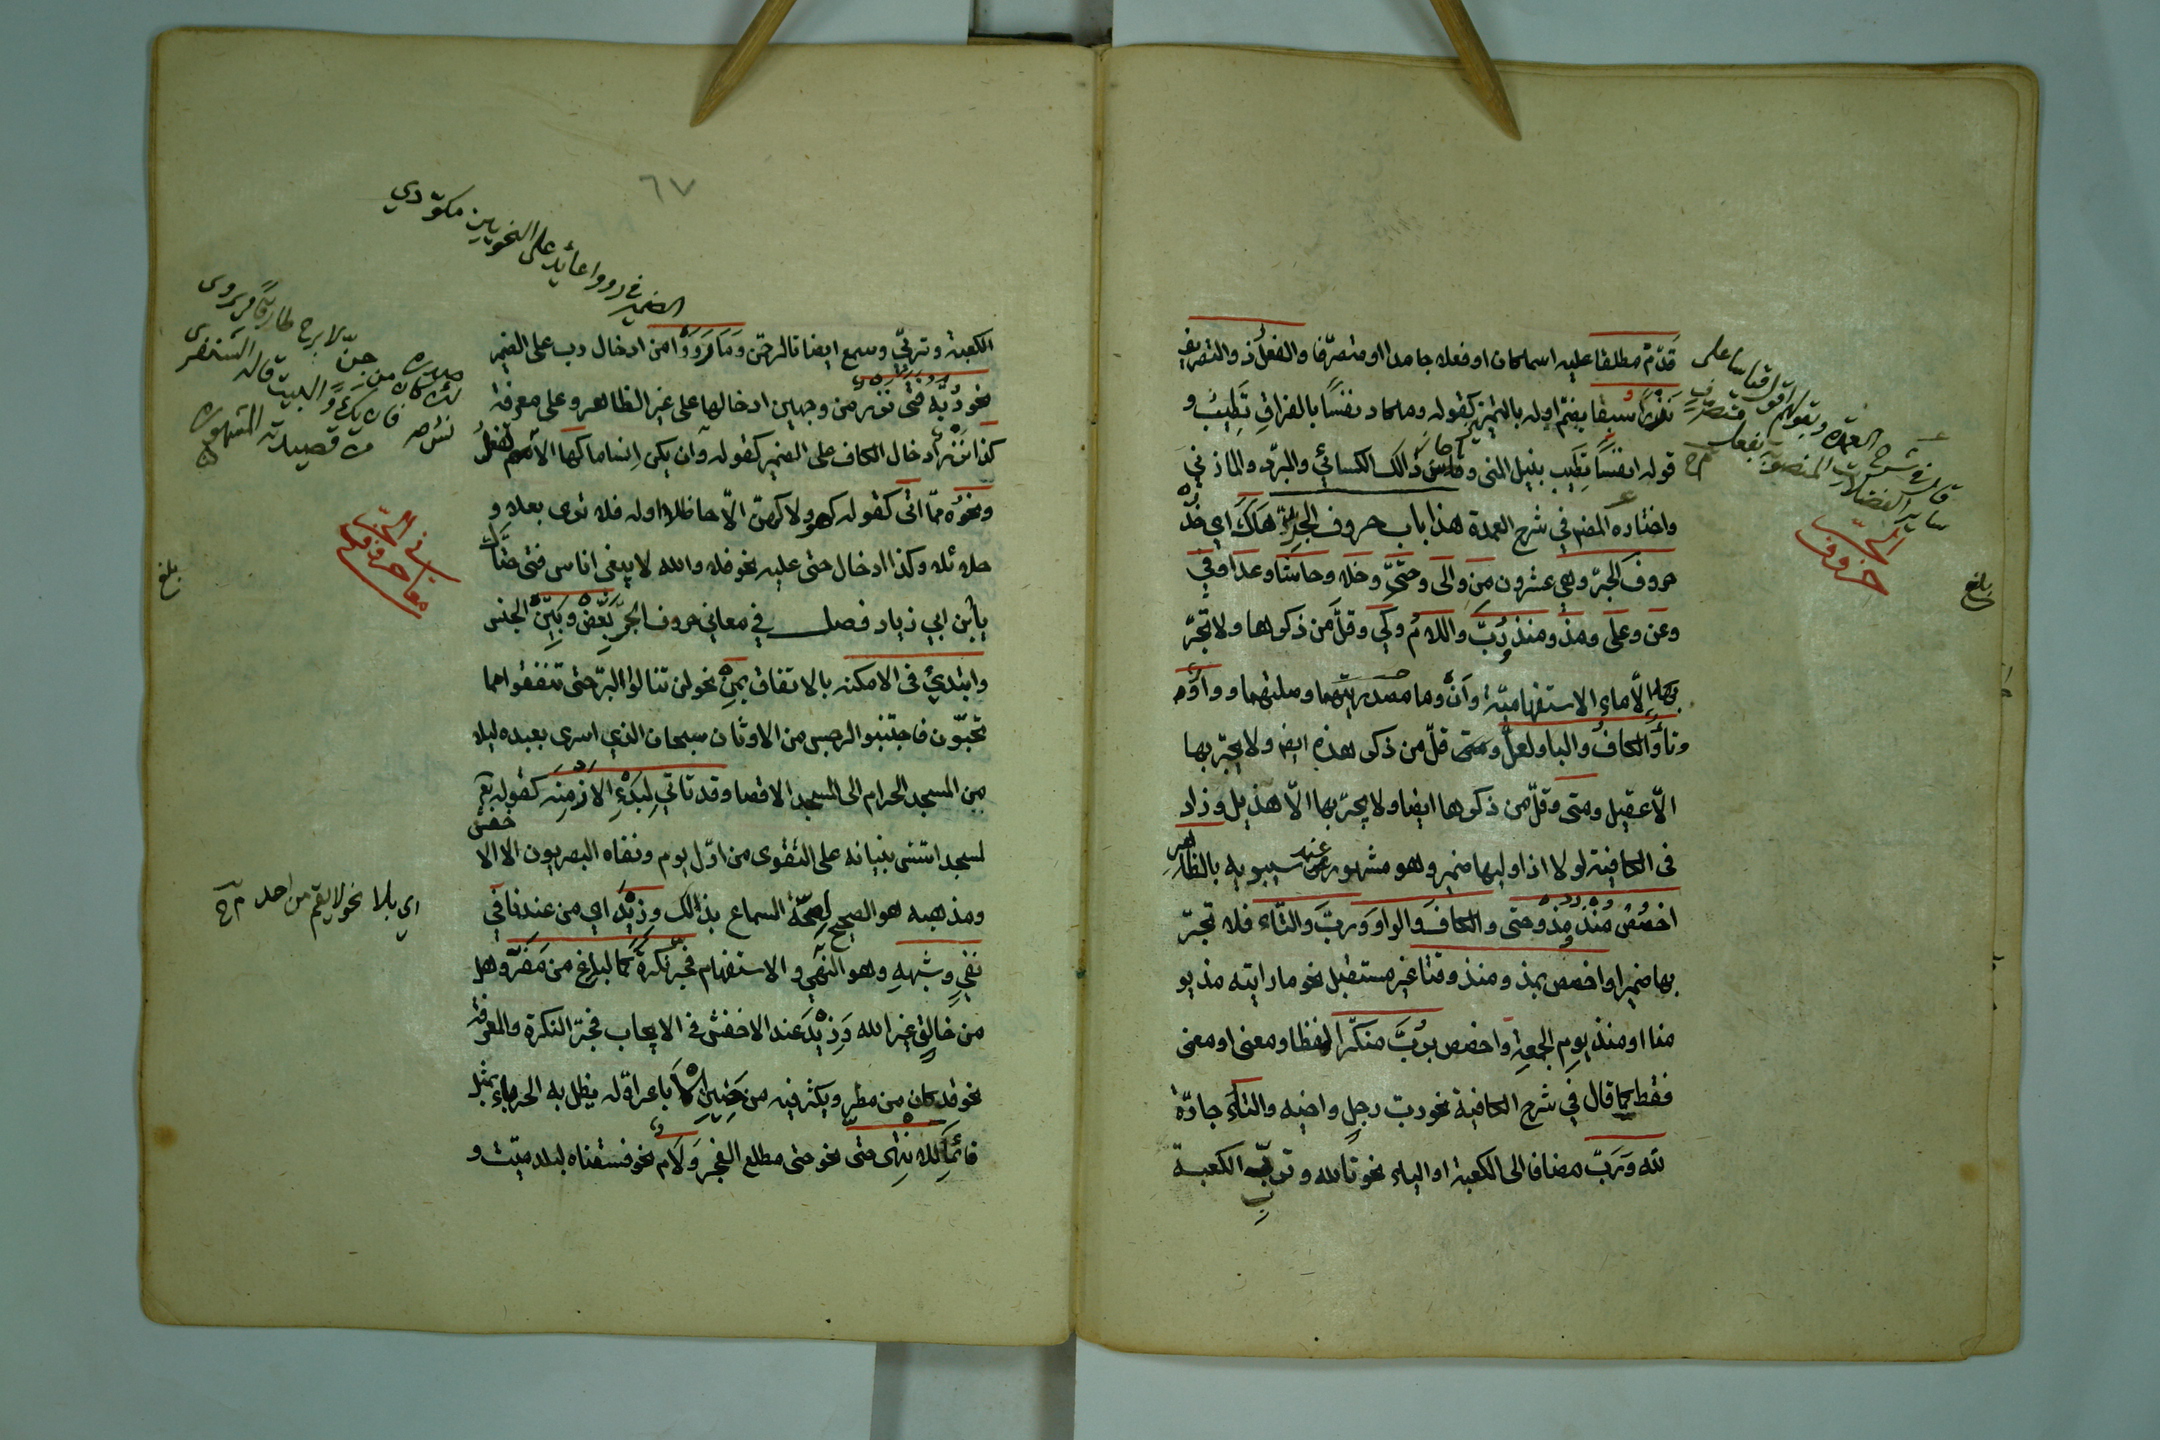 قَدِّمْ مطلقا عليه اسما كان او فعلا جامدا او متصرّفا والفعلُ ذو التصريف
نَزْرًا سبقا بضم اوله بالتمييز كقوله وما كاد نفسًا بالفراق تَطِيبُ و
قوله انفسًا تطيب بنيل المنى وقاس ذالك الكسائي والمبرّد والمازني
واختاره المصنف في شرح العمدة هذا باب حروف الجرّ هَاكَ اي خُذْ
حروف الجرّ وهي عشرون من والى وحتىّ وخلا وحاشا وعدا وفي
وعن وعلى ومذ ومنذ ورُبّ واللامُ وكي وقلَّ من ذكرها ولا تجرّ
بها الّا ماء الاستفهاميّة وأنْ وما مصدريتهما وصلتهما و واوٌ
وتاءٌ والكافُ والبا ولعلّ ومتى قلّ من ذكر هذه ايضا ولا يجرّ بها
الّا عقيل ومتى وقلّ من ذكرها ايضا ولا يجرّ بها الّا هذيل وزاد
في الكافية لولا اذا وليها ضمير وهو مشهور عند سيبويه بالظاهرِ
اخصُصْ منذُ ومذْ وحتى والكافَ والواو وربَّ والتّاء فلا تجرّ
بها ضميرا واخصص بمذ ومنذ وقتا غير مستقبل نحو ما رايته مذ يو
منا او منذ يوم الجمعة واخصص برُبَّ منكّرا لفظا ومعنى او معنى
فقط كما قال في شرح الكافية نحو ربّ رجل واخيه والتاءُ جارّة
للّه وَرَبّ مضافا الى الكعبة او الياء نحو تالله وتربّ الكعبة
قال في شرح العمدة وبقولهم اقول قياسا على
ساير الفضلات المنصوبة بفعل متصرف
حروف الجرّ
بلغ
٦٧
الضمير في رووا عائد على النحويين مكودي
الكعبة وتربّي وسمع ايضا تالرحمن وَمَا رَوَوْا من ادخال رب على الضمير
نحو رُبَّهُ فتى نزر من وجهين ادخالها على غير الظاهر وعلى معرفة
كذا نزر ادخال الكاف على الضمير كقوله وان يكن انسا ما كها الانس تفعلُ
ونحوُه ممّا اتى كقوله كهو ولا كهنّ الّا حاظلا اوله فلا ترى بعلا و
حلائلا وكذا ادخال حتى عليه نحو فلا والله لا يبقى اناس فتى حتّاك
يا بن ابي زياد فصل في معاني حروف الجرّ بَعِّضْ وبَيِّنْ الجنس
وابتدئ في الامكنه بالاتفاق بمِنْ نحو لن تنالوا البرّ حتى تنفقوا مما
تحبّون فاجتنبوا الرجس من الاوثان سبحان الذي اسرى بعبده ليلا
من المسجد الحرام الى المسجد الاقصا وقد تاتي لبَدْءِ الازمِنَه كقوله تع
لمسجد اسّس بنيانه على التقوى من اوّل يوم ونفاه البصريون الا الاخفش
ومذهبه هو الصحيح لصحّة السماع بذالك وزِيدَ اي من عندنا في
نفي وشبهه وهو النهي والاستفهام فجرّ نكرةً كما لباغ من مفرّ وهل
من خالق غير الله وَزِيْدَ عند الاخفش في الايجاب فجرّ النكرة والمعرفة
نحو قد كان من مطر ويكثر فيه من حَنِينِ الاَباعر اوّله يظل به الحرباء يمثل
قائما للانتهى حتى نحو حتى مطلع الفجر وَلَام نحو فسقناه لبلد ميّت و
لئن كان من جنّ لابرح طارقًا ويروى
معاني حروف الجرّ
بلغ
اي بلا نحو لا يقم من احد